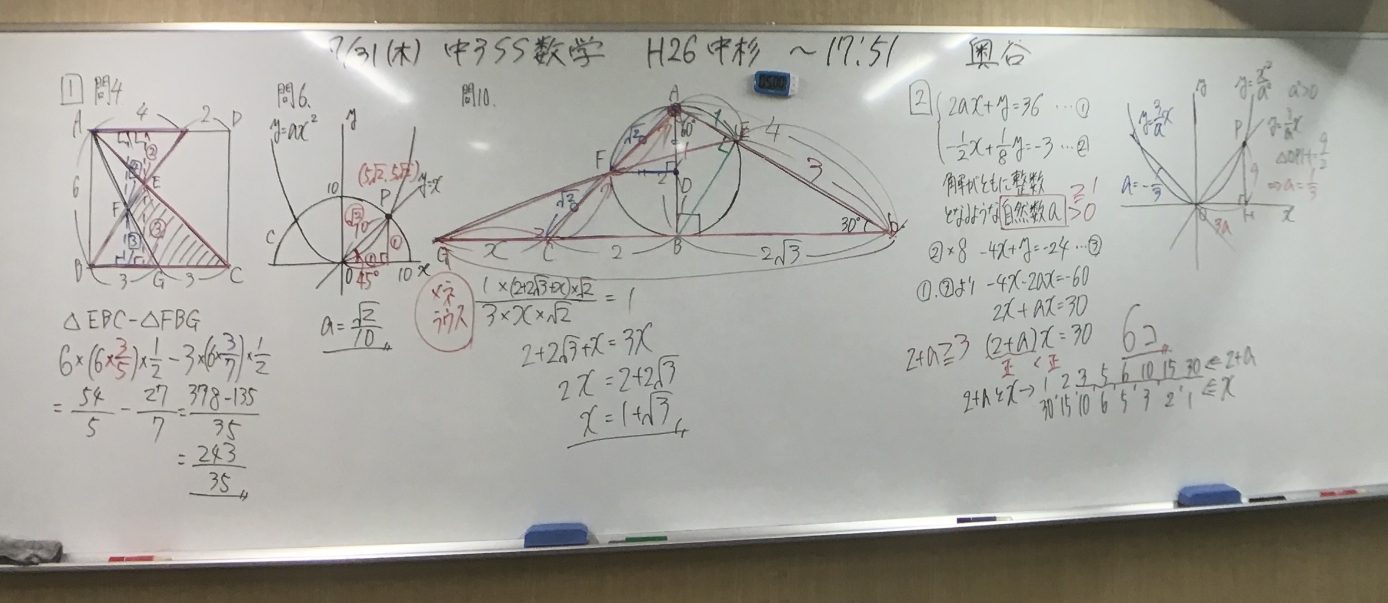 7/31(木) 中3SS数学 H26中杉 ～17:51 奥谷
1 問4
4 2
A D
6
E
F
B 3 G 3 C
△EBC-△FBG
6×(6×3/5)×1/2-3×(6×3/7)×1/2
=54/5-27/7=378-135/35
=243/35
問6.
y=ax²
y
10
(5√2, 5√2)
P y=x
C
45°
0 10 x
a=√2/10
問10.
A
60°
1
E
4
3
√2
F
2
D
√2
30°
G x C 2 B 2√3 D
メネラウス
1×(2+2√3+x)×√2/3×x×√2=1
2+2√3+x=3x
2x=2+2√3
x=1+√3
2
2ax+y=36 …①
-1/2x+1/8y=-3 …②
解がともに整数
となるような自然数a >0
≧1
②×8 -4x+y=-24 …③
①,③より -4x-2ax=-60
2x+ax=30
2+a≧3 (2+a)x=30
正 正
6コ
2+aとx→ 1 2 3 5 6 10 15 30 ←2+a
30 15 10 6 5 3 2 1 ←x
y
y=x²/a² a>0
P
△OPH=9/2
⇒a=1/3
9
O 3a H x